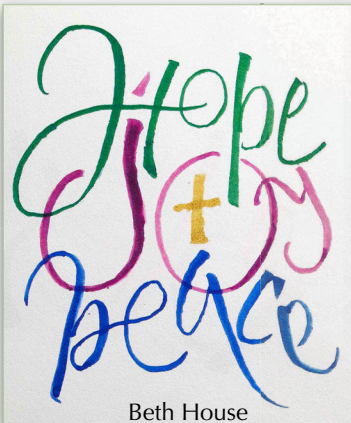 Hope
joy
peace
Beth House